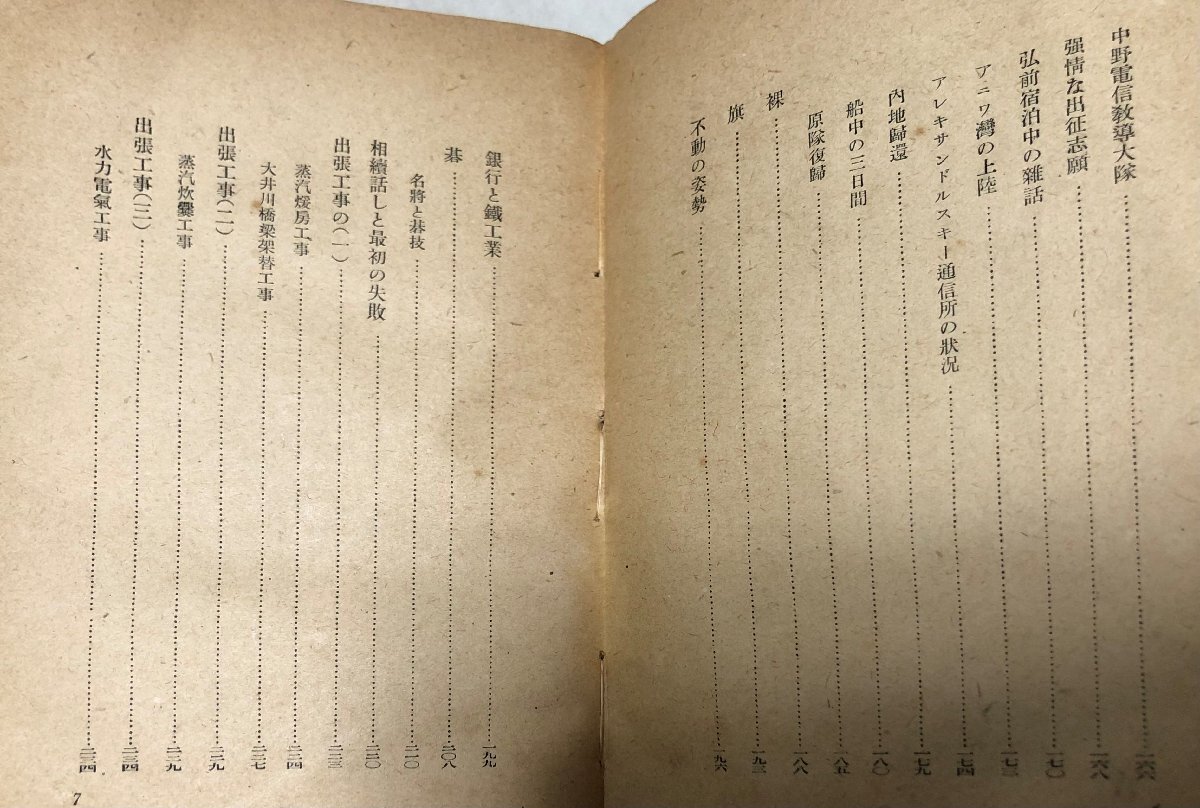 中野電信教導大隊……一六六
强情な出征志願……一六八
弘前宿泊中の雜話……一七〇
アニワ灣の上陸……一七三
アレキサンドルスキー通信所の狀況……一七四
內地歸還……一七九
船中の三日間……一八〇
原隊復歸……一八五
裸……一八八
旗……一九三
不動の姿勢……一九六
銀行と鐵工業……一九九
碁……二〇八
名將と碁技……二一〇
相續話しと最初の失敗……二二〇
出張工事の(一)……二二三
蒸汽煖房工事……二二四
大井川橋梁架替工事……二二七
出張工事(二)……二二九
蒸汽炊爨工事……二二九
出張工事(三)……二三四
水力電氣工事……二三四
7